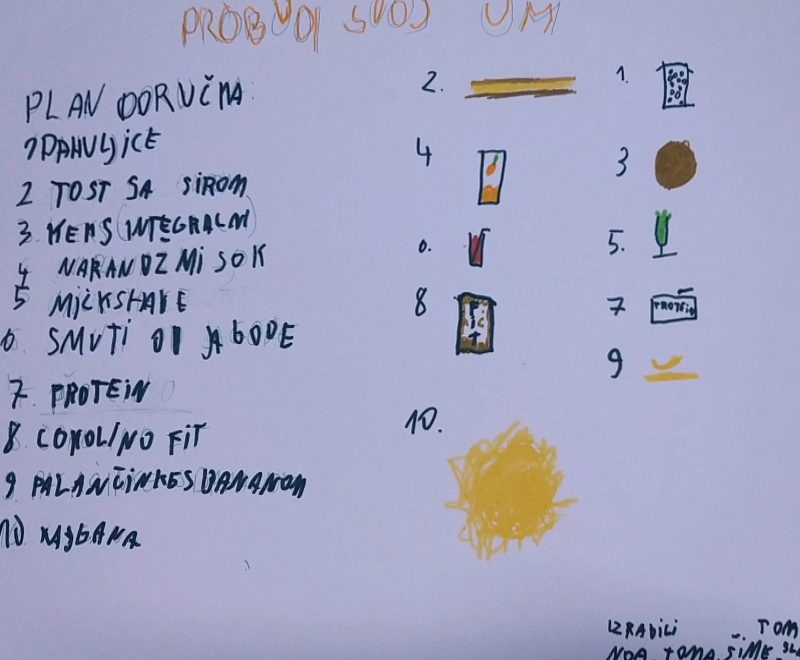 PROBUDI SVOJ UM
PLAN DORUČKA:
1 PAHULJICE
2 TOST SA SIROM
3 KEKS (INTEGRALNI)
4 NARANDZMI SOK
5 MILKSHAKE
6 SMUTI OD JAGODE
7 PROTEIN
8 ČOKOLINO FIT
9 PALAČINKE S BANANOM
10 KAJGANA
2.
1.
4
3
6.
5.
8
FIT
7
PROTEIN
9
10.
IZRADILI
TOMA ŠIME